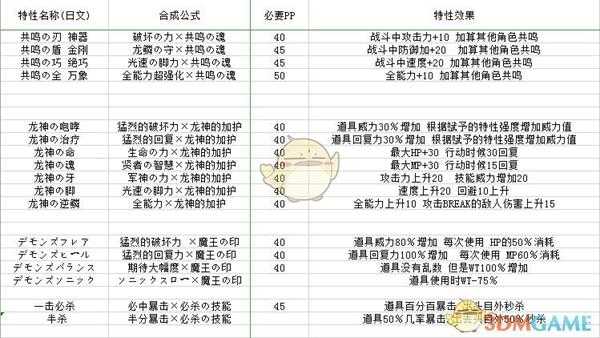 特性名称(日文) 合成公式 必要PP 特性效果
共鸣の刃 神器 破坏の力×共鸣の魂 40 战斗中攻击力+10 加算其他角色共鸣
共鸣の盾 金刚 龙鳞の守×共鸣の魂 45 战斗中防御加+20 加算其他角色共鸣
共鸣の巧 绝巧 光速の脚力×共鸣の魂 45 战斗中速度+20 加算其他角色共鸣
共鸣の全 万象 全能力超强化×共鸣の魂 50 全能力+10 加算其他角色共鸣
龙神の咆哮 猛烈的破坏力×龙神的加护 40 道具威力30%增加 根据赋予的特性强度增加威力值
龙神の治疗 猛烈的回复×龙神的加护 40 道具回复力30%增加 根据赋予的特性强度增加威力值
龙神の命 生命の力×龙神的加护 40 最大HP+30 行动时候30回复
龙神の魂 贤者の智慧×龙神的加护 40 最大MP+30 行动时候15回复
龙神の牙 军神の力×龙神的加护 40 攻击力上升20 技能威力增加20
龙神の脚 光速の脚力×龙神的加护 40 速度上升20 回避10上升
龙神の逆鳞 全能力×龙神的加护 40 全能力上升10 攻击BREAK的敌人伤害上升15
デモンズフレア 猛烈的破坏力 ×魔王の印 40 道具威力80%增加 每次使用 HP的50%消耗
デモンズヒール 猛烈的回复力×魔王の印 40 道具回复力100%增加 每次使用 MP60%消耗
デモンズバランス 期待大幅度×魔王の印 40 道具没有乱数 但是WT100%增加
デモンズソニック ソニックスロー×魔王の印 道具使用时WT-75%
一击必杀 必中暴击×必杀の技能 45 道具百分百暴击 头目外秒杀
半杀 半分暴击×必杀の技能 道具50%几率暴击 50%秒杀
3DMGAME